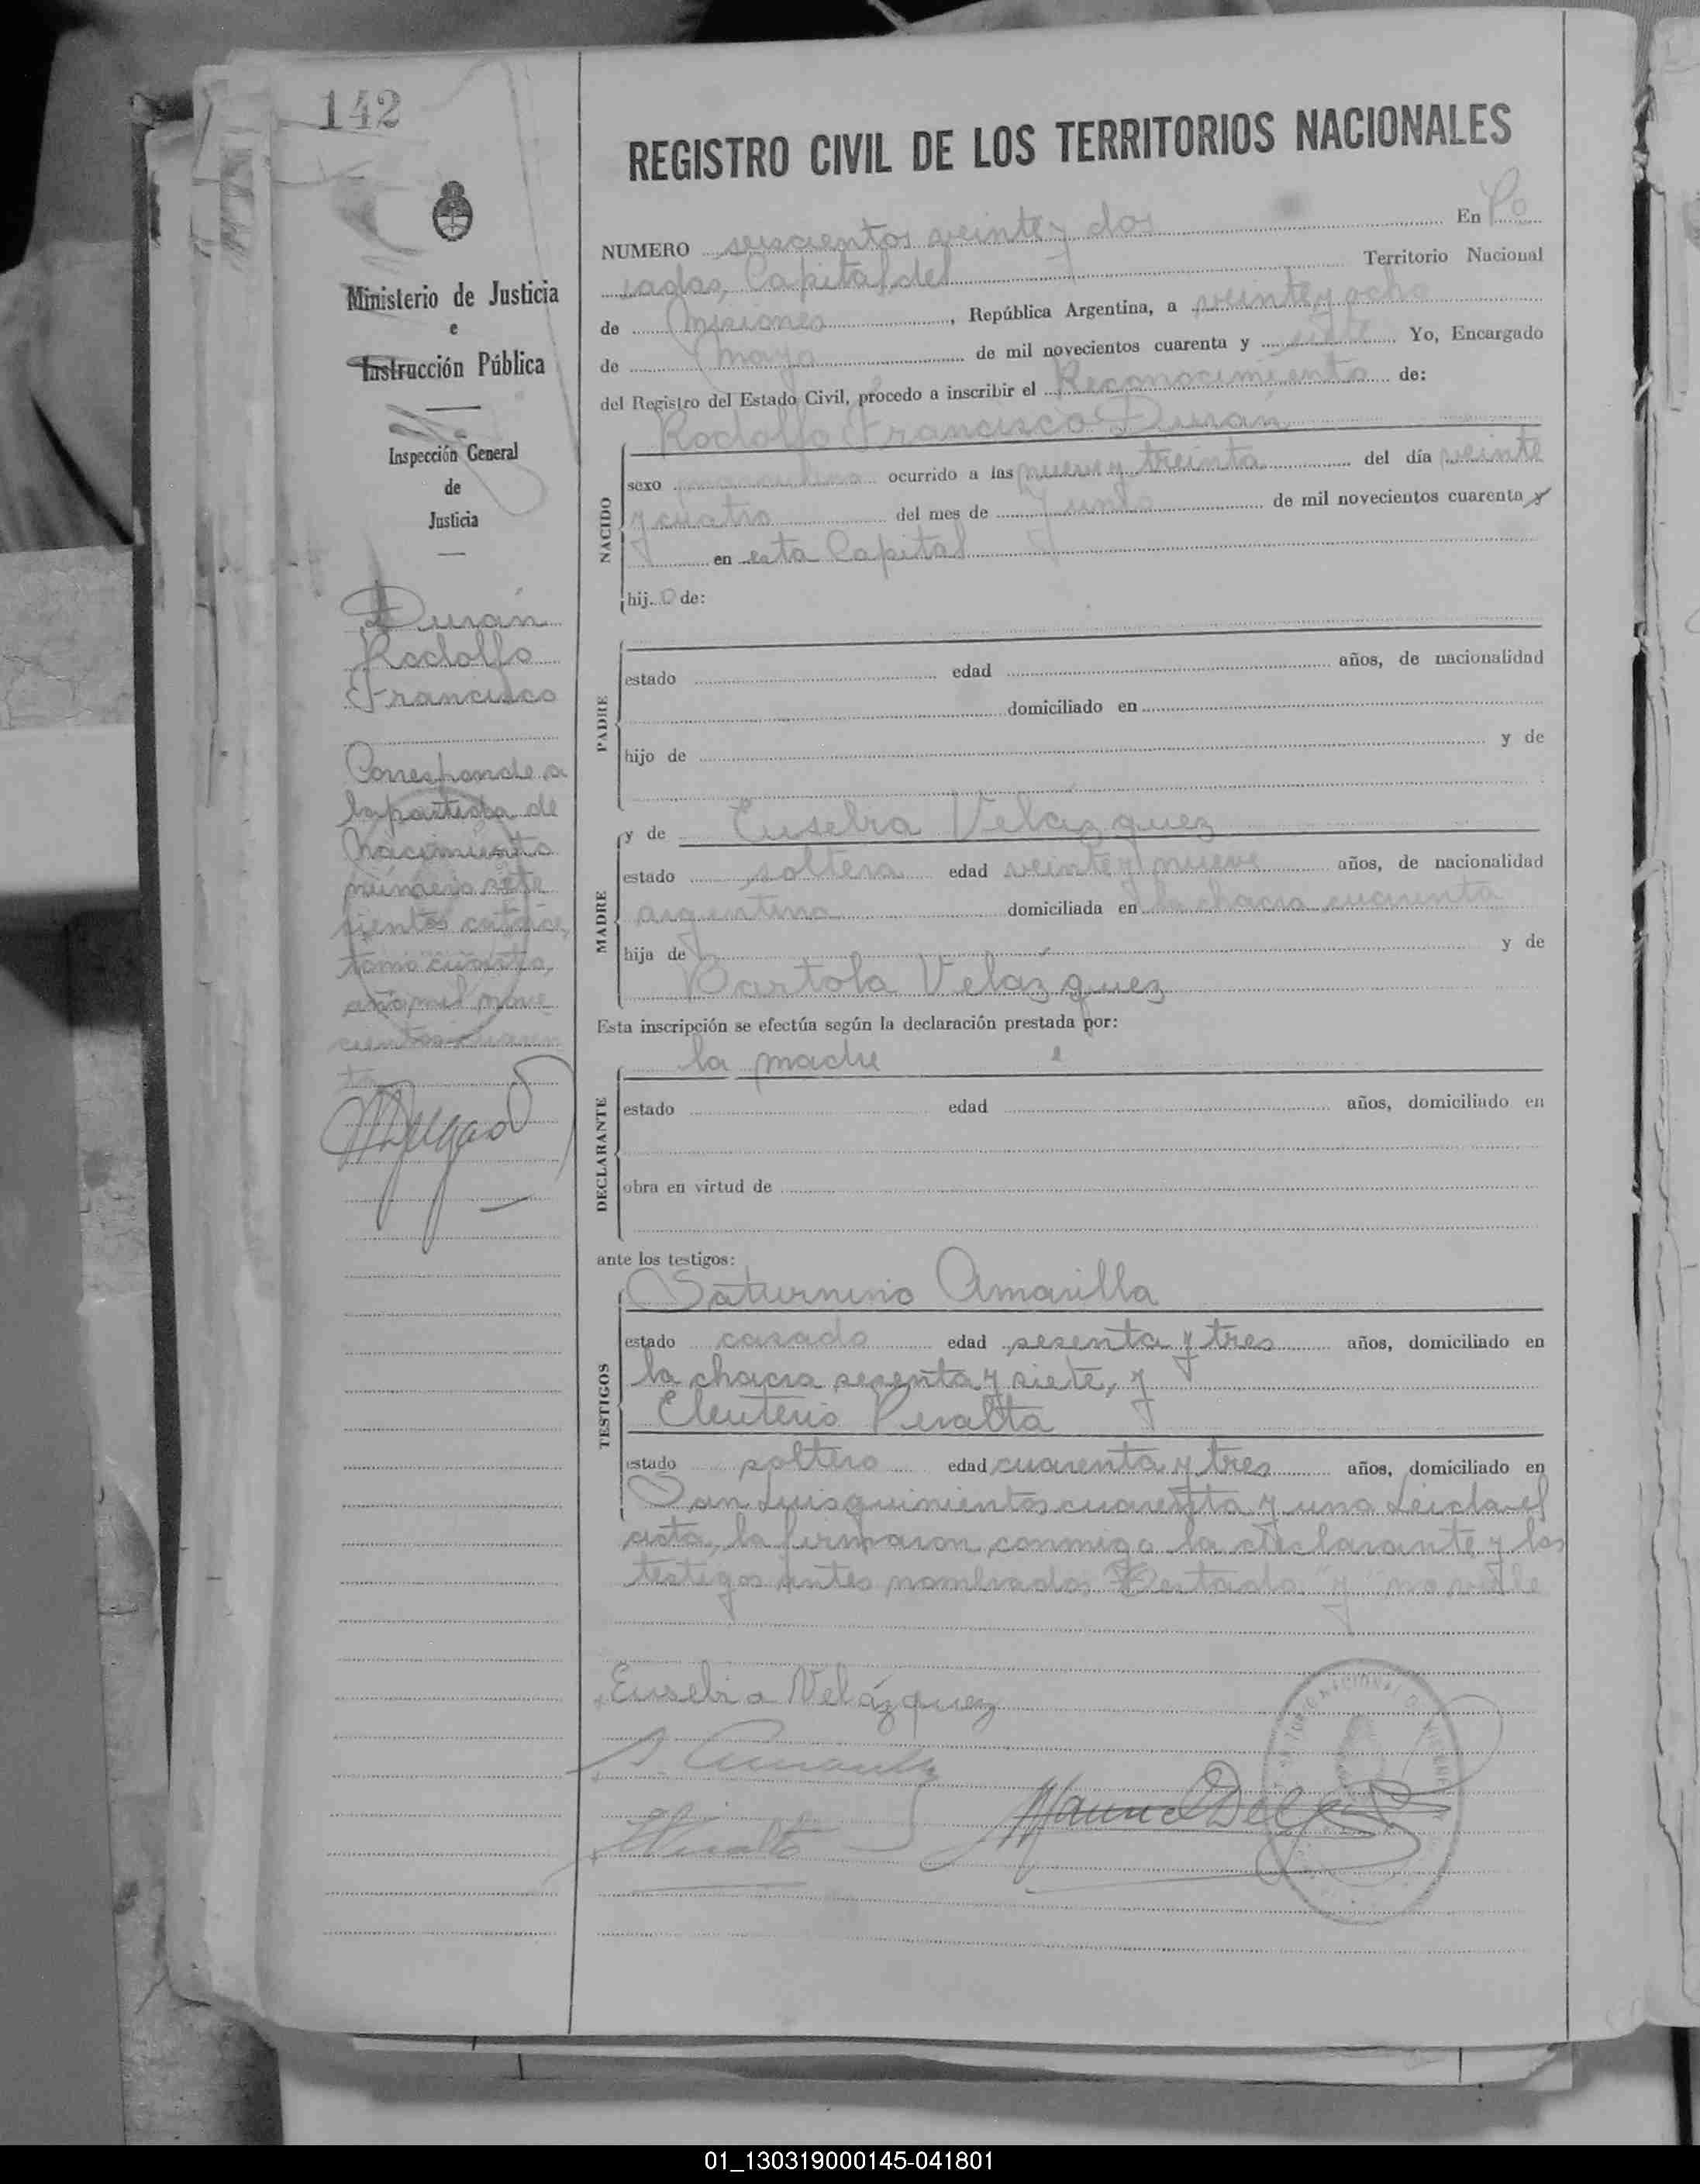 142
REGISTRO CIVIL DE LOS TERRITORIOS NACIONALES
Ministerio de Justicia
e
Instrucción Pública
Inspección General
de
Justicia
Durán
Rodolfo
Francisco
Corresponde a
la partida de
Nacimiento
número sete
cientos catorce,
tomo cuarto,
año mil nove
cientos cuaren
ta
NUMERO seiscientos veinte y dos En Po
sadas, Capital del Territorio Nacional
de Misiones, República Argentina, a veinte y ocho
de Mayo de mil novecientos cuarenta y siete Yo, Encargado
del Registro del Estado Civil, procedo a inscribir el Reconocimiento de:
Rodolfo Francisco Durán
NACIDO
sexo masculino ocurrido a las nueve y treinta del día veinte
y cuatro del mes de Junio de mil novecientos cuarenta y
en esta Capital
hijo de:
PADRE
estado edad años, de nacionalidad
domiciliado en
hijo de y de
MADRE
y de Eusebia Velázquez
estado soltera edad veinte y nueve años, de nacionalidad
argentina domiciliada en la chacra cuarenta
hija de y de
Bartola Velázquez
Esta inscripción se efectúa según la declaración prestada por:
la madre
DECLARANTE
estado edad años, domiciliado en
obra en virtud de
ante los testigos:
TESTIGOS
Saturnino Amarilla
estado casado edad sesenta y tres años, domiciliado en
la chacra sesenta y siete, y
Eleuterio Peralta
estado soltero edad cuarenta y tres años, domiciliado en
San Luis quinientos cuarenta y uno Leida el
acta, la firmaron conmigo la declarante y los
testigos antes nombrados Testado "y" no vale
Eusebia Velázquez
S. Amarilla
EPeralta
01_130319000145-041801